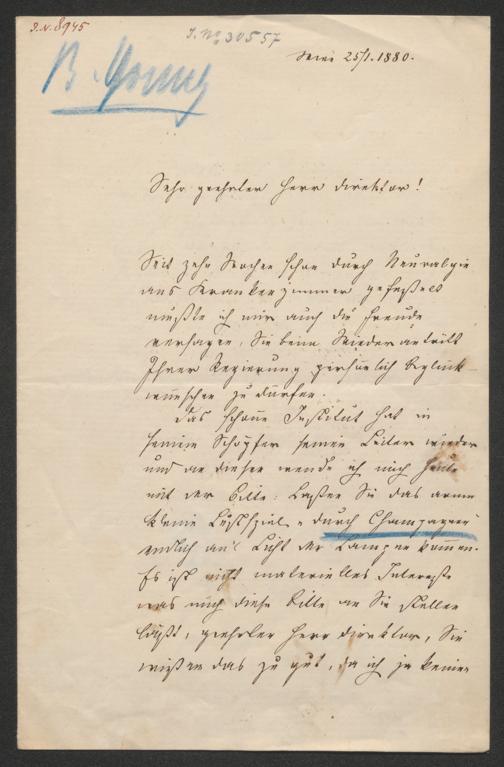 J.N. 8945
J. No 30557
B. Young
Wien 25/1. 1880.
Sehr geehrter Herr Direktor!
Seit zehn Wochen schon durch Neuralgie
ans Krankenzimmer gefeßelt
mußte ich mir auch die Freude
versagen, Sie beim Wiederantritt
Ihrer Regierung persönlich beglück-
wünschen zu dürfen.
Das schöne Institut hat in
seinem Schöpfer seinen Leiter wieder
und an diesen wende ich mich heute
mit der Bitte: Laßen Sie das arme
kleine Lustspiel „durch Champagner“
endlich an's Licht der Lampen kommen.
Es ist nicht materielles Interesse
was mich diese Bitte an Sie stellen
läßt, geehrter Herr Direktor, Sie
wißen das zu gut, da ich ja keinen